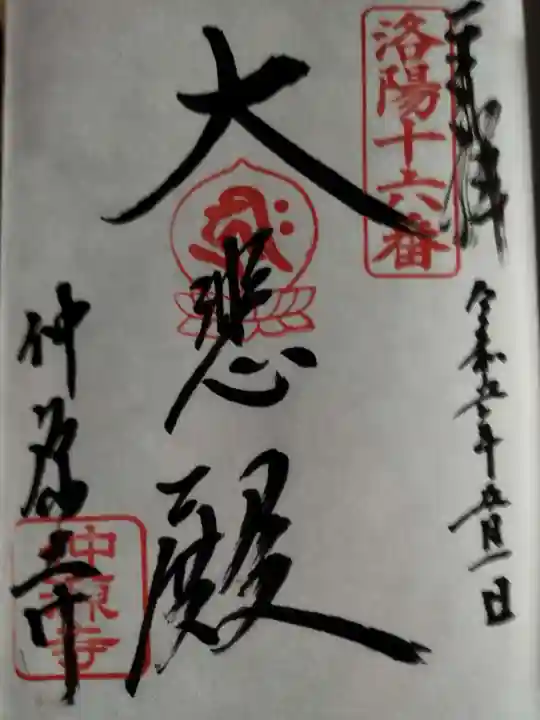 奉拝
洛陽十六番
令和五年五月一日
大悲殿
仲源寺
仲源寺